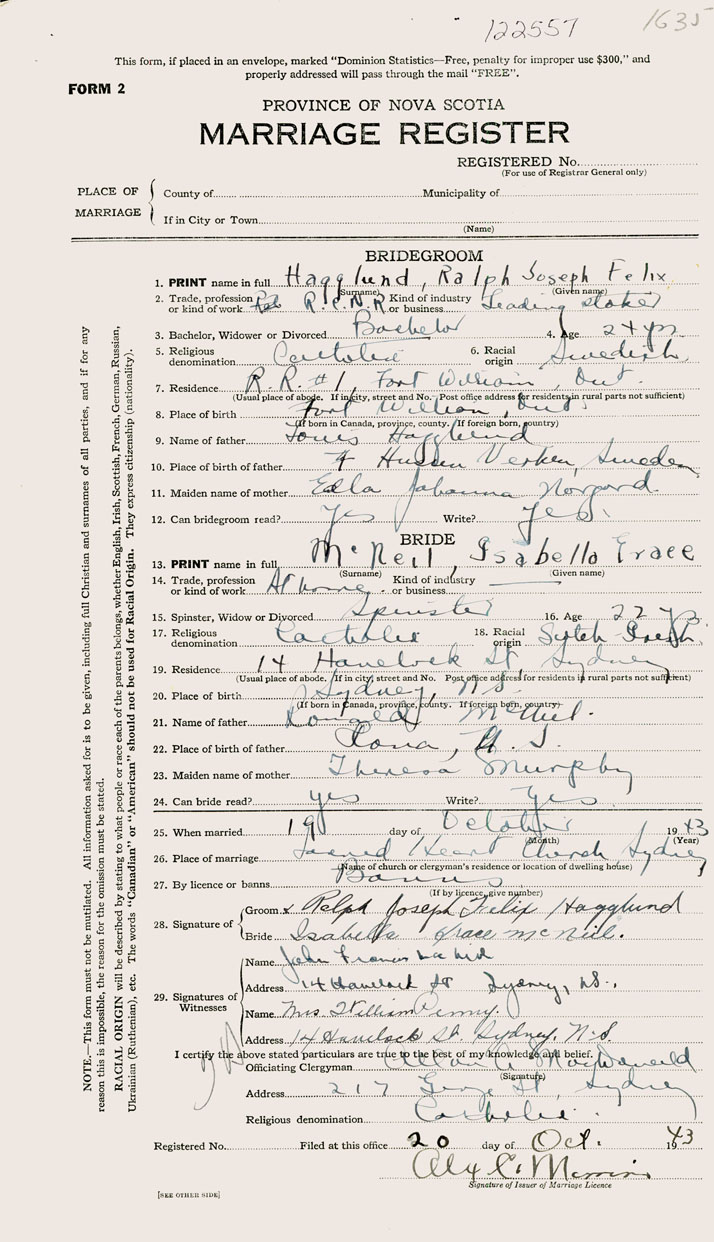 122557
1635
This form, if placed in an envelope, marked "Dominion Statistics—Free, penalty for improper use $300," and
properly addressed will pass through the mail "FREE".
FORM 2
PROVINCE OF NOVA SCOTIA
MARRIAGE REGISTER
REGISTERED No.
(For use of Registrar General only)
PLACE OF MARRIAGE
County of Municipality of
If in City or Town
(Name)
BRIDEGROOM
1. PRINT name in full Hagglund, Ralph Joseph Felix
(Surname) (Given name)
2. Trade, profession or kind of work R.C.N.R Kind of industry or business Leading stoker
3. Bachelor, Widower or Divorced Bachelor 4. Age 24 yrs
5. Religious denomination Catholic 6. Racial origin Swedish
7. Residence R.R. #1, Fort William, Ont.
(Usual place of abode. If in city, street and No. Post office address for residents in rural parts not sufficient)
8. Place of birth Fort William, Ont.
(If born in Canada, province, county. If foreign born, country)
9. Name of father Louis Hagglund
10. Place of birth of father Verken, Sweden
11. Maiden name of mother Edla Johanna Norgard
12. Can bridegroom read? Yes Write? Yes.
BRIDE
13. PRINT name in full McNeil, Isabella Grace
(Surname) (Given name)
14. Trade, profession or kind of work At home. Kind of industry or business
15. Spinster, Widow or Divorced Spinster 16. Age 22 yrs
17. Religious denomination Catholic 18. Racial origin Scotch
19. Residence 14 Havelock St, Sydney
(Usual place of abode. If in city, street and No. Post office address for residents in rural parts not sufficient)
20. Place of birth Sydney, N.S.
(If born in Canada, province, county. If foreign born, country)
21. Name of father Donald McNeil.
22. Place of birth of father Iona, N.S.
23. Maiden name of mother Theresa Murphy
24. Can bride read? yes Write? Yes
25. When married 19 day of October 1943
(Month) (Year)
26. Place of marriage Sacred Heart Church Sydney
(Name of church or clergyman's residence or location of dwelling house)
27. By licence or banns Banns
(If by licence, give number)
28. Signature of
Groom x Ralph Joseph Felix Hagglund
Bride Isabella Grace McNeil.
29. Signatures of Witnesses
Name John Francis
Address 14 Havelock St Sydney, N.S.
Name Mrs. William Penny.
Address 14 Havelock St. Sydney, N.S.
I certify the above stated particulars are true to the best of my knowledge and belief.
Officiating Clergyman MacDonald
(Signature)
Address 217 George St, Sydney
Religious denomination Catholic.
Registered No. Filed at this office 20 day of Oct. 1943
Signature of Issuer of Marriage Licence
[SEE OTHER SIDE]
NOTE.—This form must not be mutilated. All information asked for is to be given, including full Christian and surnames of all parties, and if for any
reason this is impossible, the reason for the omission must be stated.
RACIAL ORIGIN will be described by stating to what people or race each of the parents belongs, whether English, Irish, Scottish, French, German, Russian,
Ukrainian (Ruthenian), etc. The words "Canadian" or "American" should not be used for Racial Origin. They express citizenship (nationality).